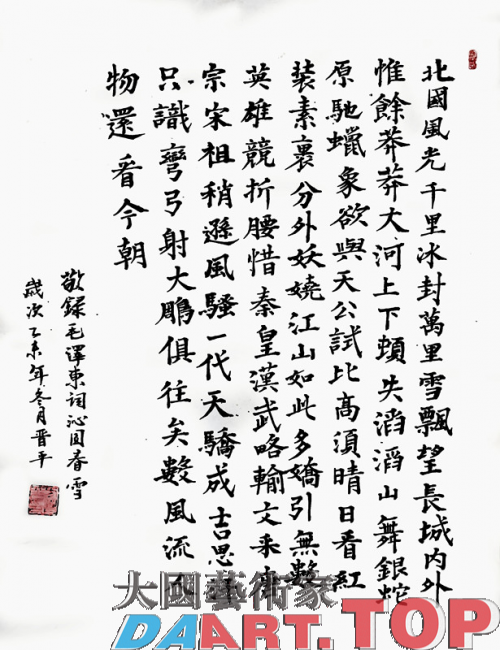 北國風光千里冰封萬里雪飄望長城内外
惟餘莽莽大河上下頓失滔滔山舞銀蛇
原馳蠟象欲與天公試比高須晴日看紅
装素裹分外妖嬈江山如此多嬌引無數
英雄競折腰惜秦皇漢武略輸文采唐
宗宋祖稍遜風騷一代天驕成吉思汗
只識彎弓射大鵰俱往矣數風流人
物還看今朝
敬錄毛澤東詞沁园春雪
歲次乙未年冬月晋平
大國藝術家
DAART.TOP